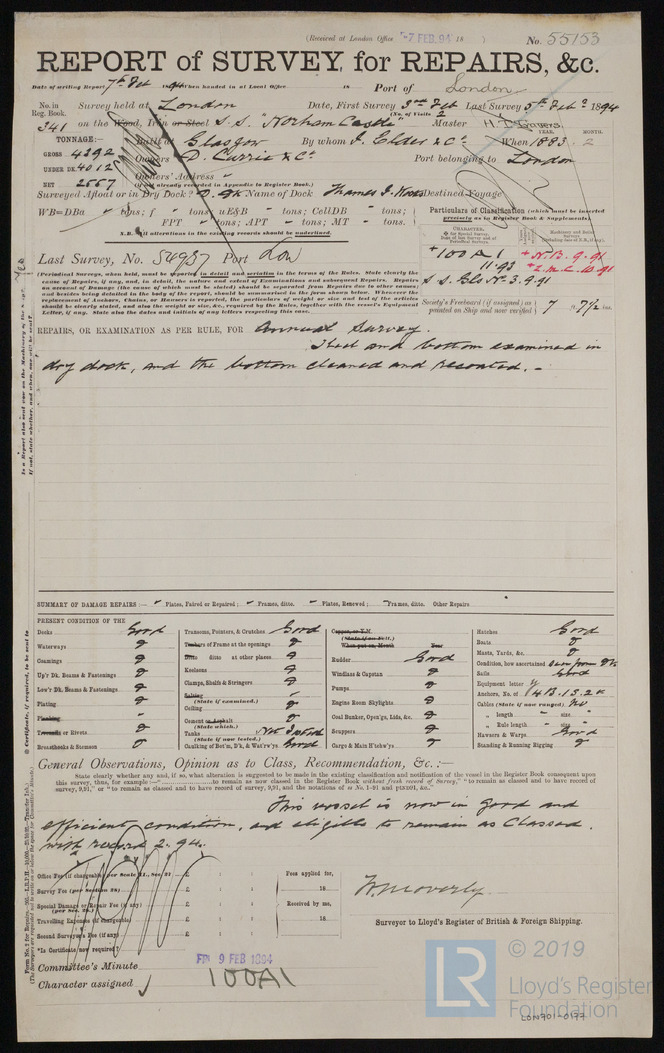 (Received at London Office 7 FEB. 94 18 )
No. 55153
REPORT of SURVEY, for REPAIRS, &c.
Date of writing Report 7th Feb 1894 When handed in at Local Office 18 Port of London
No. in Reg. Book. Survey held at London Date, First Survey 3rd Feb Last Survey 5th Feb 1894
(No. of Visits 2
341 on the Wood, Iron or Steel S.S. "Norham Castle" Master
YEAR. MONTH.
TONNAGE:— Built at Glasgow By whom J. Elder & Co When 1883 2
GROSS 4392 Owners D. Currie & Co Port belonging to London
UNDER DK. 4012 Owners' Address
NET 2557 (if not already recorded in Appendix to Register Book.)
Surveyed Afloat or in Dry Dock? D. Dk Name of Dock Thames I. Works Destined Voyage
WB=DBa " tons; f " tons; uE&B " tons; CellDB " tons;
FPT " tons; APT " tons; MT " tons.
N.B. All alterations in the existing records should be underlined.
Particulars of Classification (which must be inserted precisely as in Register Book & Supplements).
CHARACTER.
Last Survey, No. 54937 Port Lon
+100 A 1
11.93
S. S. Gls No. 3. 9.91
+N.B. 9.91
+L.M.C. 10.91
(Periodical Surveys, when held, must be reported in detail and seriatim in the terms of the Rules. State clearly the
cause of Repairs, if any, and, in detail, the nature and extent of Examinations and subsequent Repairs. Repairs
on account of Damage (the cause of which must be stated) should be separated from Repairs due to other causes;
and besides being detailed in the body of the report, should be summarised in the form shewn below. Whenever the
replacement of Anchors, Chains, or Hawsers is reported, the particulars of weight or size and test of the articles
should be clearly stated, and also the weight or size, &c., required by the Rules, together with the vessel's Equipment
Letter, if any. State also the dates and initials of any letters respecting this case.
Society's Freeboard (if assigned) as printed on Ship and now verified 7 ft 7½ ins.
REPAIRS, OR EXAMINATION AS PER RULE, FOR Annual Survey.
Keel and bottom examined in
dry dock, and the bottom cleaned and recoated. –
SUMMARY OF DAMAGE REPAIRS:— " Plates, Faired or Repaired; " Frames, ditto. " Plates, Renewed; " Frames, ditto. Other Repairs
PRESENT CONDITION OF THE
Decks Good
Waterways
Coamings
Up'r Dk. Beams & Fastenings
Low'r Dk. Beams & Fastenings
Plating
Planking
Treenails or Rivets
Breasthooks & Stemson
Transoms, Pointers, & Crutches Good
Timbers of Frame at the openings
Ditto ditto at other places
Keelsons
Clamps, Shelfs & Stringers
Salting (State if examined.)
Ceiling
Cement or Asphalt (State which.)
Tanks (State if now tested.) Not Tested
Caulking of Bot'm, D'k, & Wat'rw'ys Good
Copper, or Y.M. (State if on Felt.)
When put on, Month Year
Rudder Good
Windlass & Capstan
Pumps
Engine Room Skylights
Coal Bunker, Open'gs, Lids, &c.
Scuppers
Cargo & Main H'tchw'ys
Hatches Good
Boats
Masts, Yards, &c.
Condition, how ascertained Seen from Dk
Sails Good
Equipment letter
Anchors, No. of 4 B. 1 S. 2 K
Cables (State if now ranged) No
" length " size
" Rule length " size
Hawsers & Warps Good
Standing & Running Rigging
General Observations, Opinion as to Class, Recommendation, &c.:—
State clearly whether any, and if so, what alteration is suggested to be made in the existing classification and notification of the vessel in the Register Book consequent upon
this survey, thus, for example:—" to remain as now classed in the Register Book without fresh record of Survey," "to remain as classed and to have record of
survey, 9,91," or "to remain as classed and to have record of survey, 9,91, and the notations of ss No 1-91 and pts91, &c."
This vessel is now in good and
efficient condition, and eligible to remain as Classed.
with record 2. 94.
Office Fee (if chargeable) per Scale II., Sec. 27 £
Survey Fee (per Section 28) £
Special Damage or Repair Fee (if any) (per Sec. 28.) £
Travelling Expenses (if chargeable) £
Second Surveyor's Fee (if any) £
*Is Certificate now required?
Fees applied for,
18
Received by me,
18
Surveyor to Lloyd's Register of British & Foreign Shipping.
Committee's Minute FRI 9 FEB 1894
Character assigned 100A1
© 2019
LR
Lloyd's Register
Foundation
LON701-0177